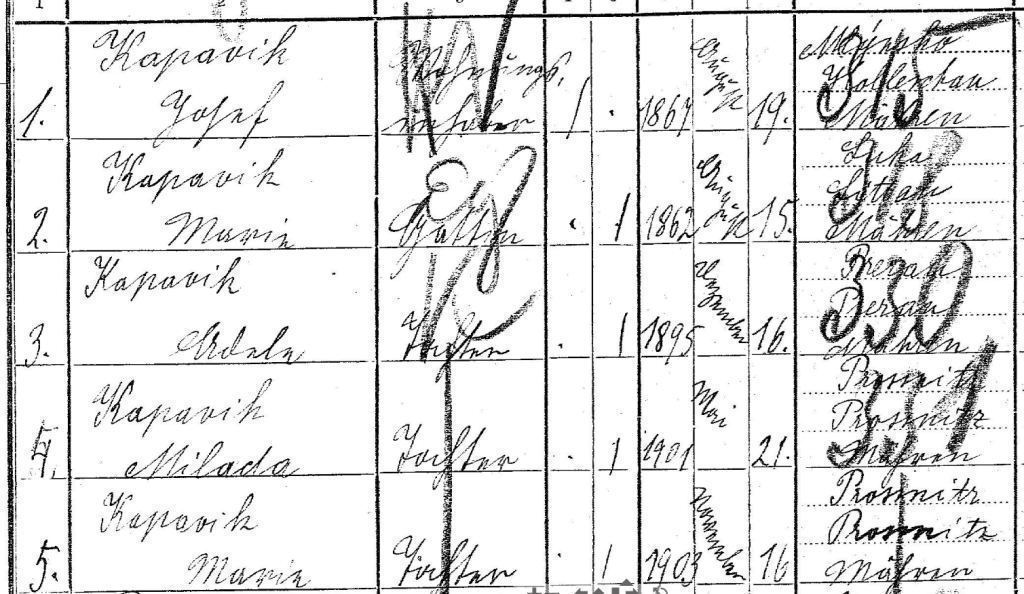 Kapavik
Wohnungs,
August
1. Josef
inhaber
1 . 1867
19.
Mähren
Kapavik
August
2. Marie
Gattin
. 1 1862
15.
Littau
Mähren
Kapavik
Dezember
Prerau
Prerau
3. Adele
Tochter
. 1 1895
16.
Mähren
330
Kapavik
Mai
Prossnitz
Prossnitz
4. Milada
Tochter
. 1 1901
21.
Mähren
Kapavik
November
Prossnitz
Prossnitz
5. Marie
Tochter
. 1 1903
16
Mähren